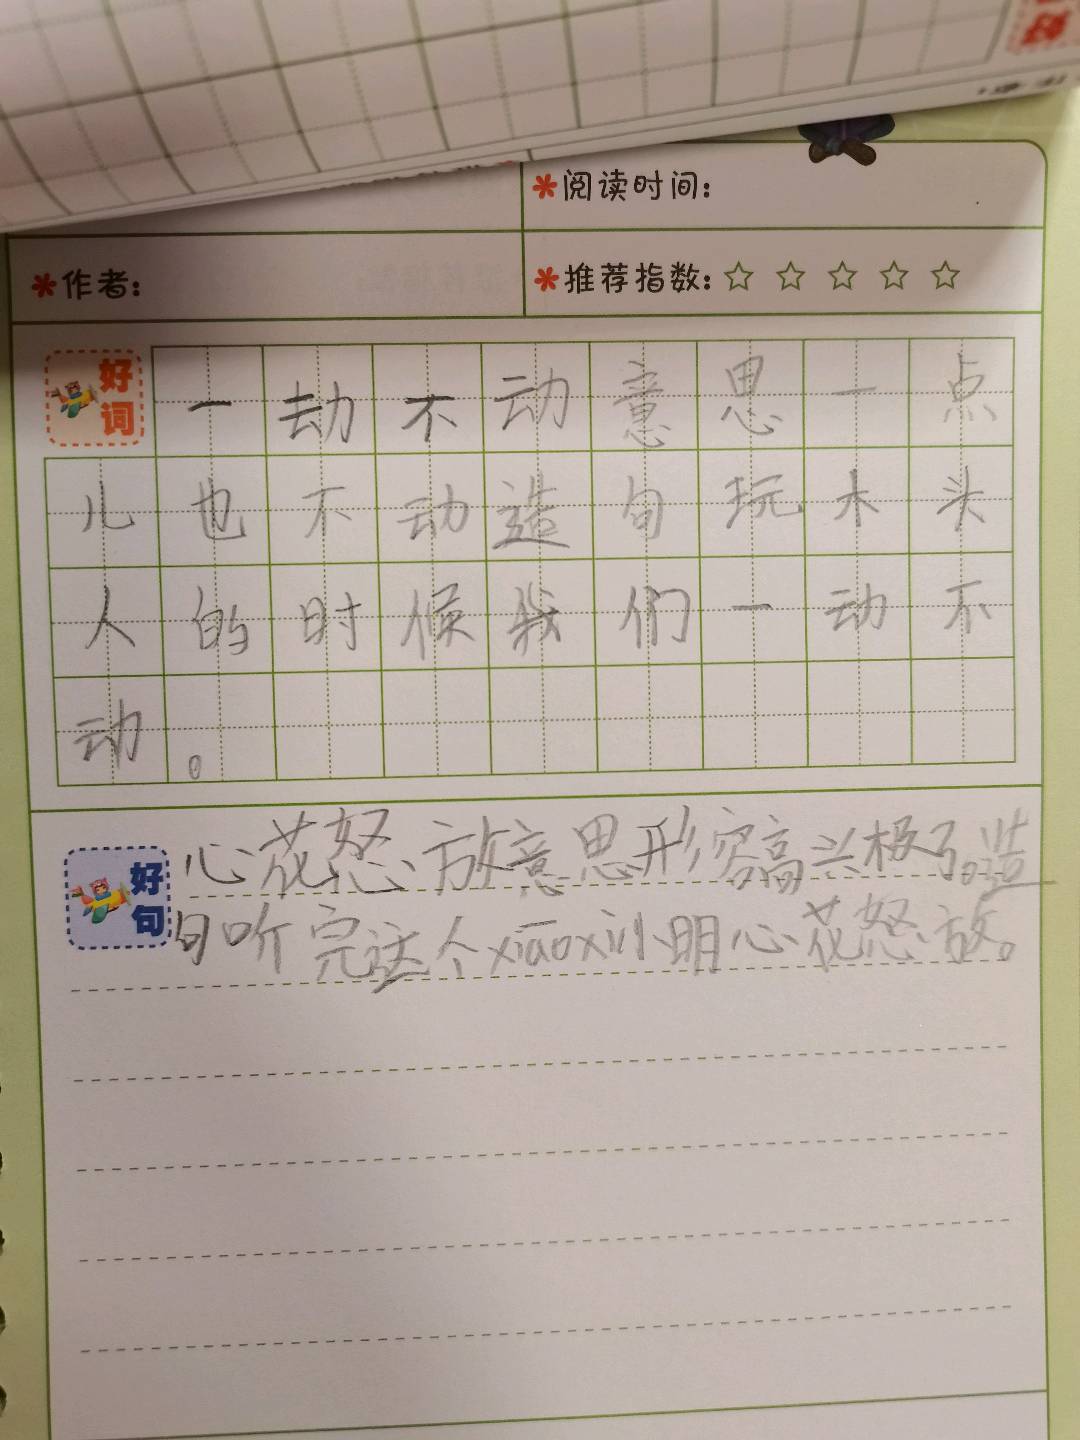 阅读时间:
作者:
推荐指数:
好词
一动不动意思一点
儿也不动造句玩木头
人的时候我们一动不
动。
好句
心花怒放意思形容高兴极了。造
句听完这个xiāoxi小明心花怒放。